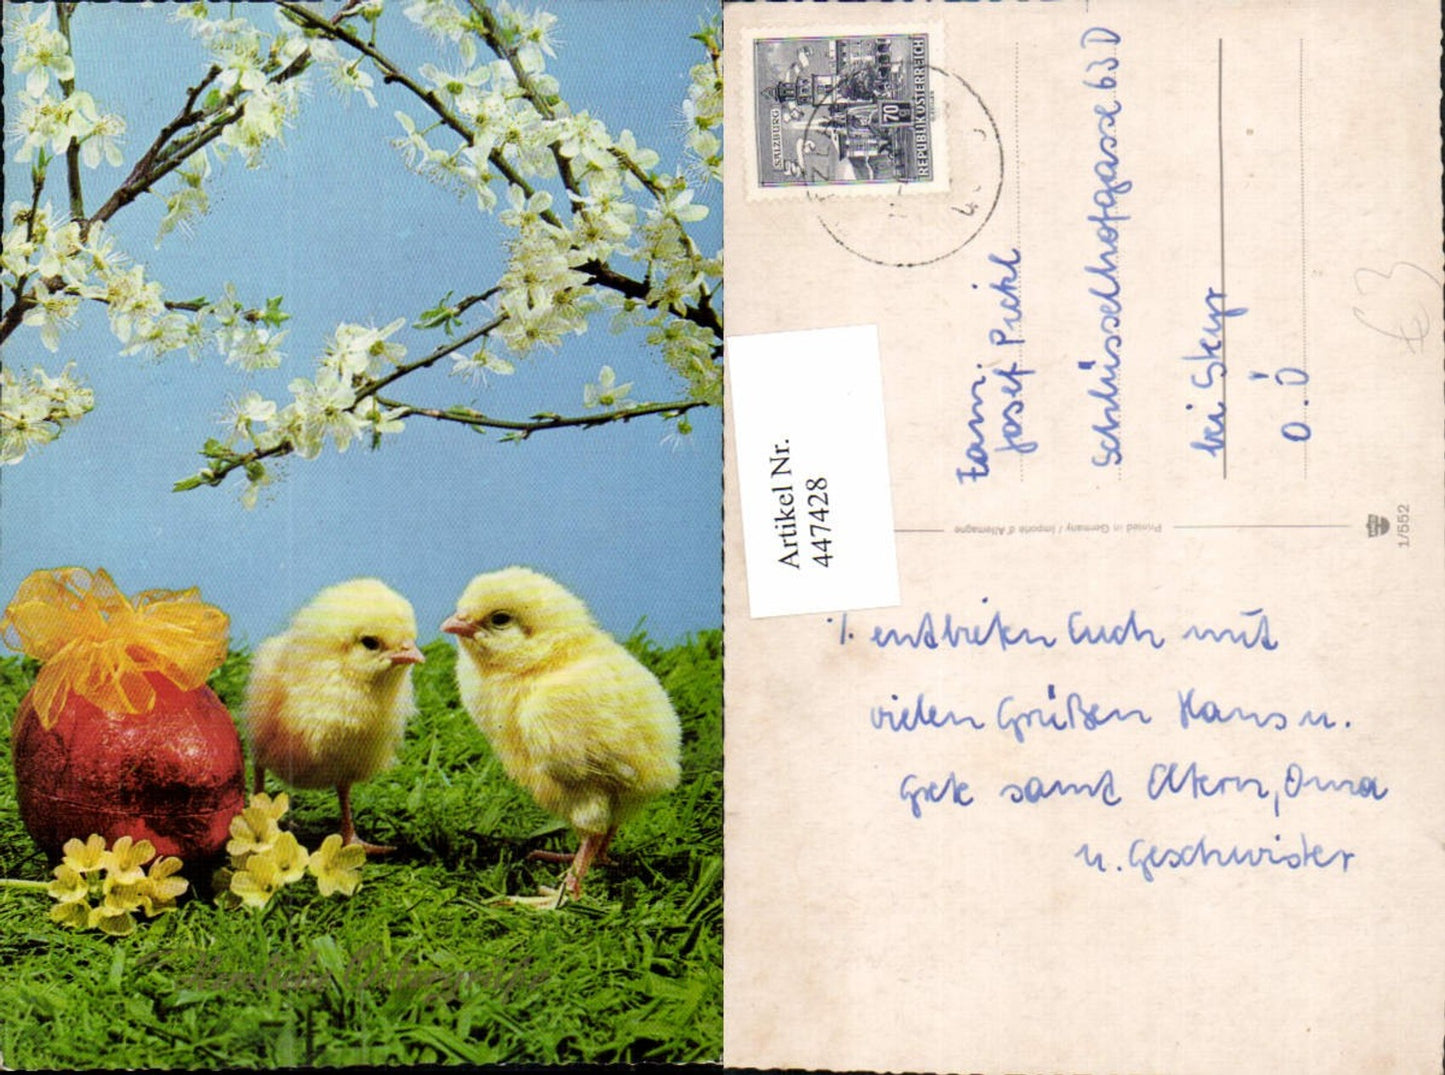 Herzliche Ostergrüße
SALZBURG
70
g
REPUBLIK ÖSTERREICH
Fam.
Josef Pickl
Schlüsselhofgasse 63 D
bei Steyr
O.Ö
€ 3
Artikel Nr.
447428
Printed in Germany / Importé d'Allemagne
1/552
·/. entbieten Euch mit
vielen Grüßen Hans u.
Grete samt Eltern, Oma
u. Geschwister